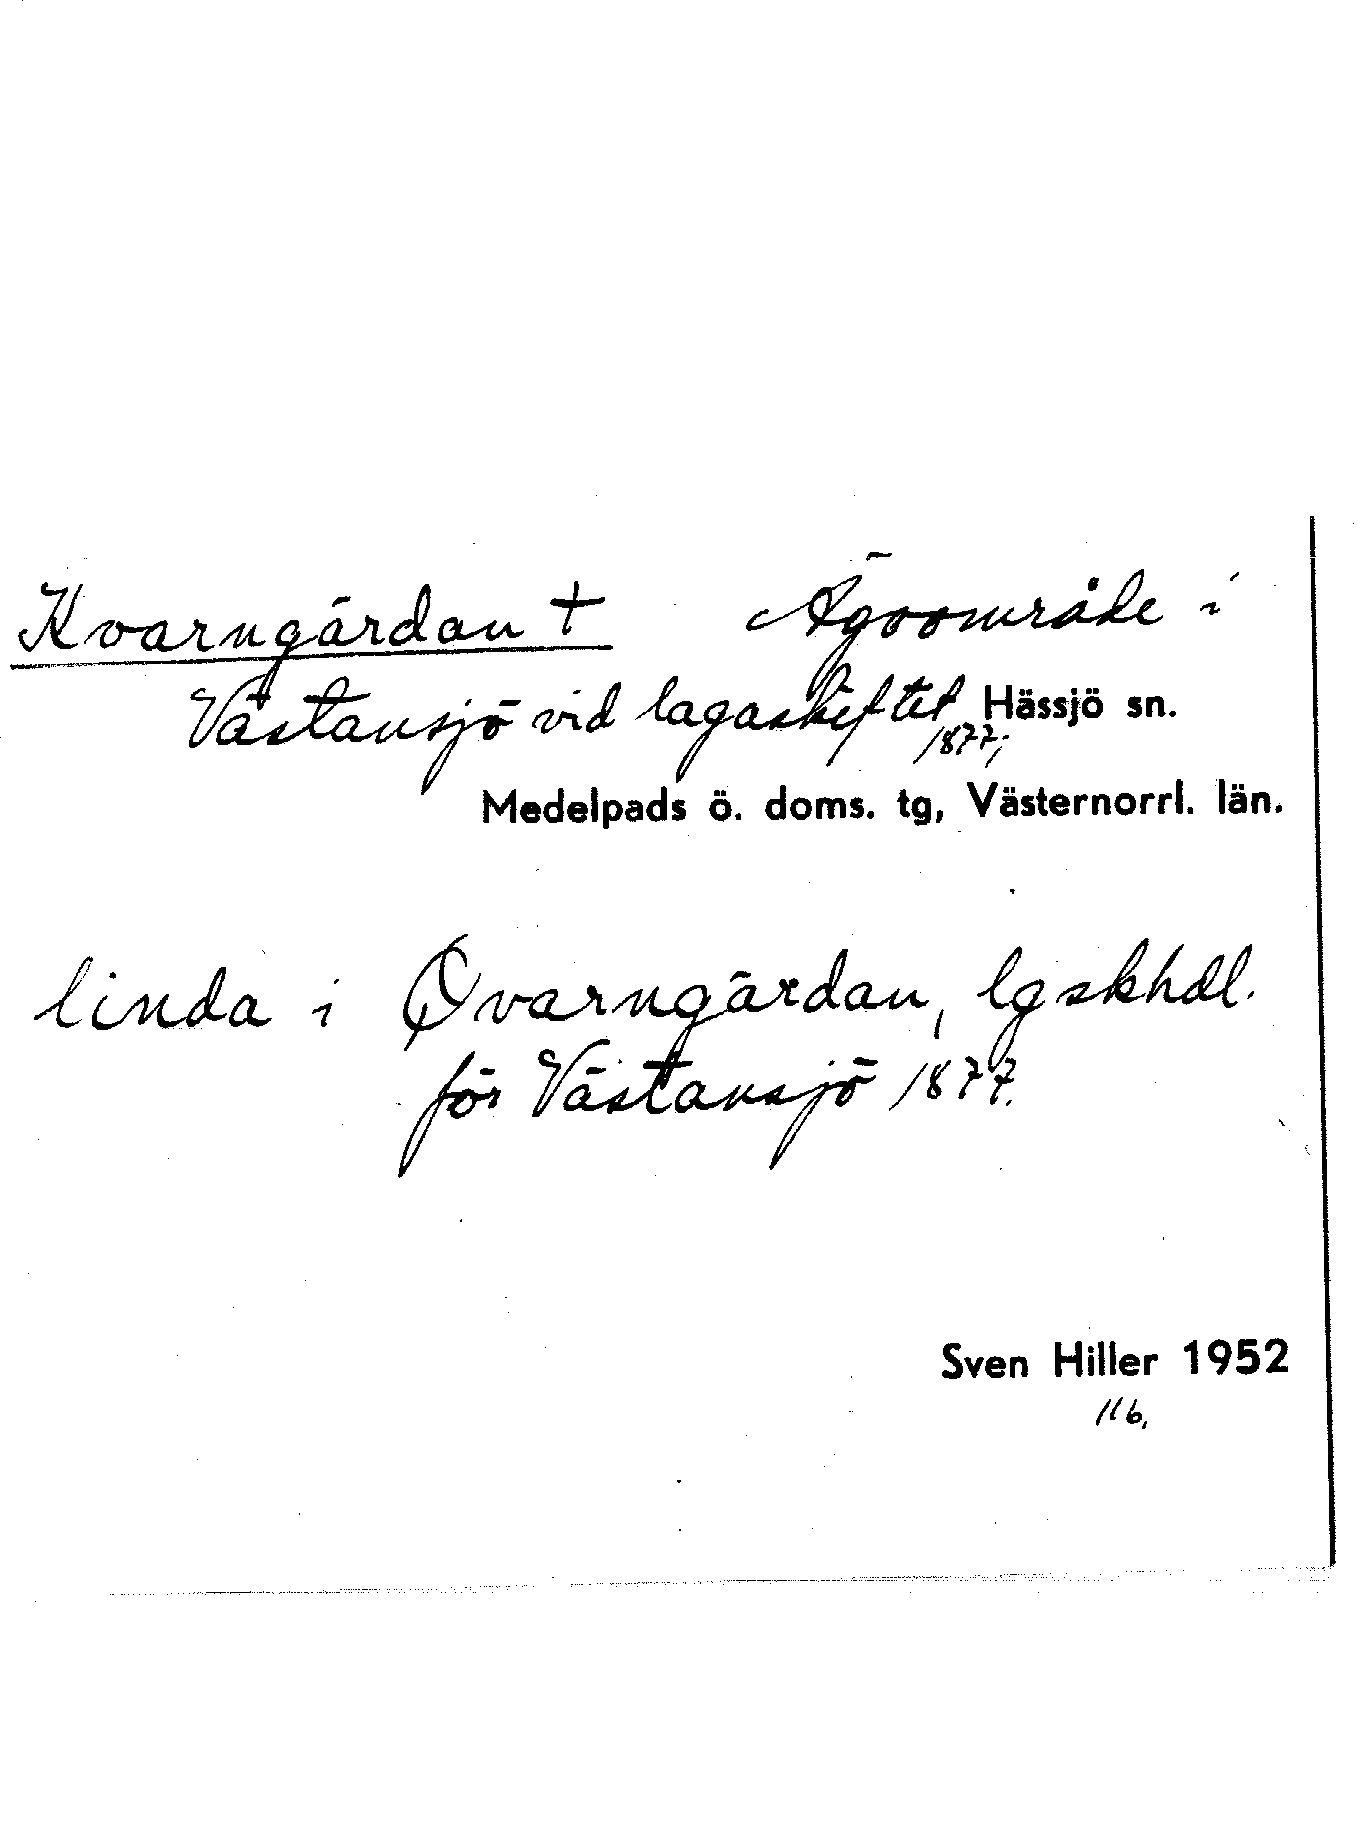 Kvarngärdan † Ägoområde i
Västansjö vid lagaskiftet 1877; Hässjö sn.
Medelpads ö. doms. tg, Västernorrl. län.
linda i Qvarngärdan, lgskhdl.
för Västansjö 1877.
Sven Hiller 1952
116,